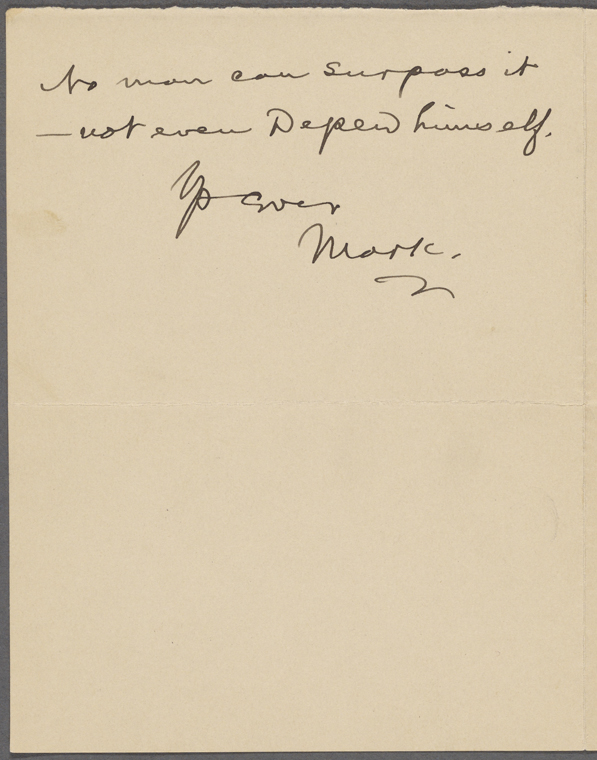 No man can surpass it
—not even Depew himself.
Ys Ever
Mark.